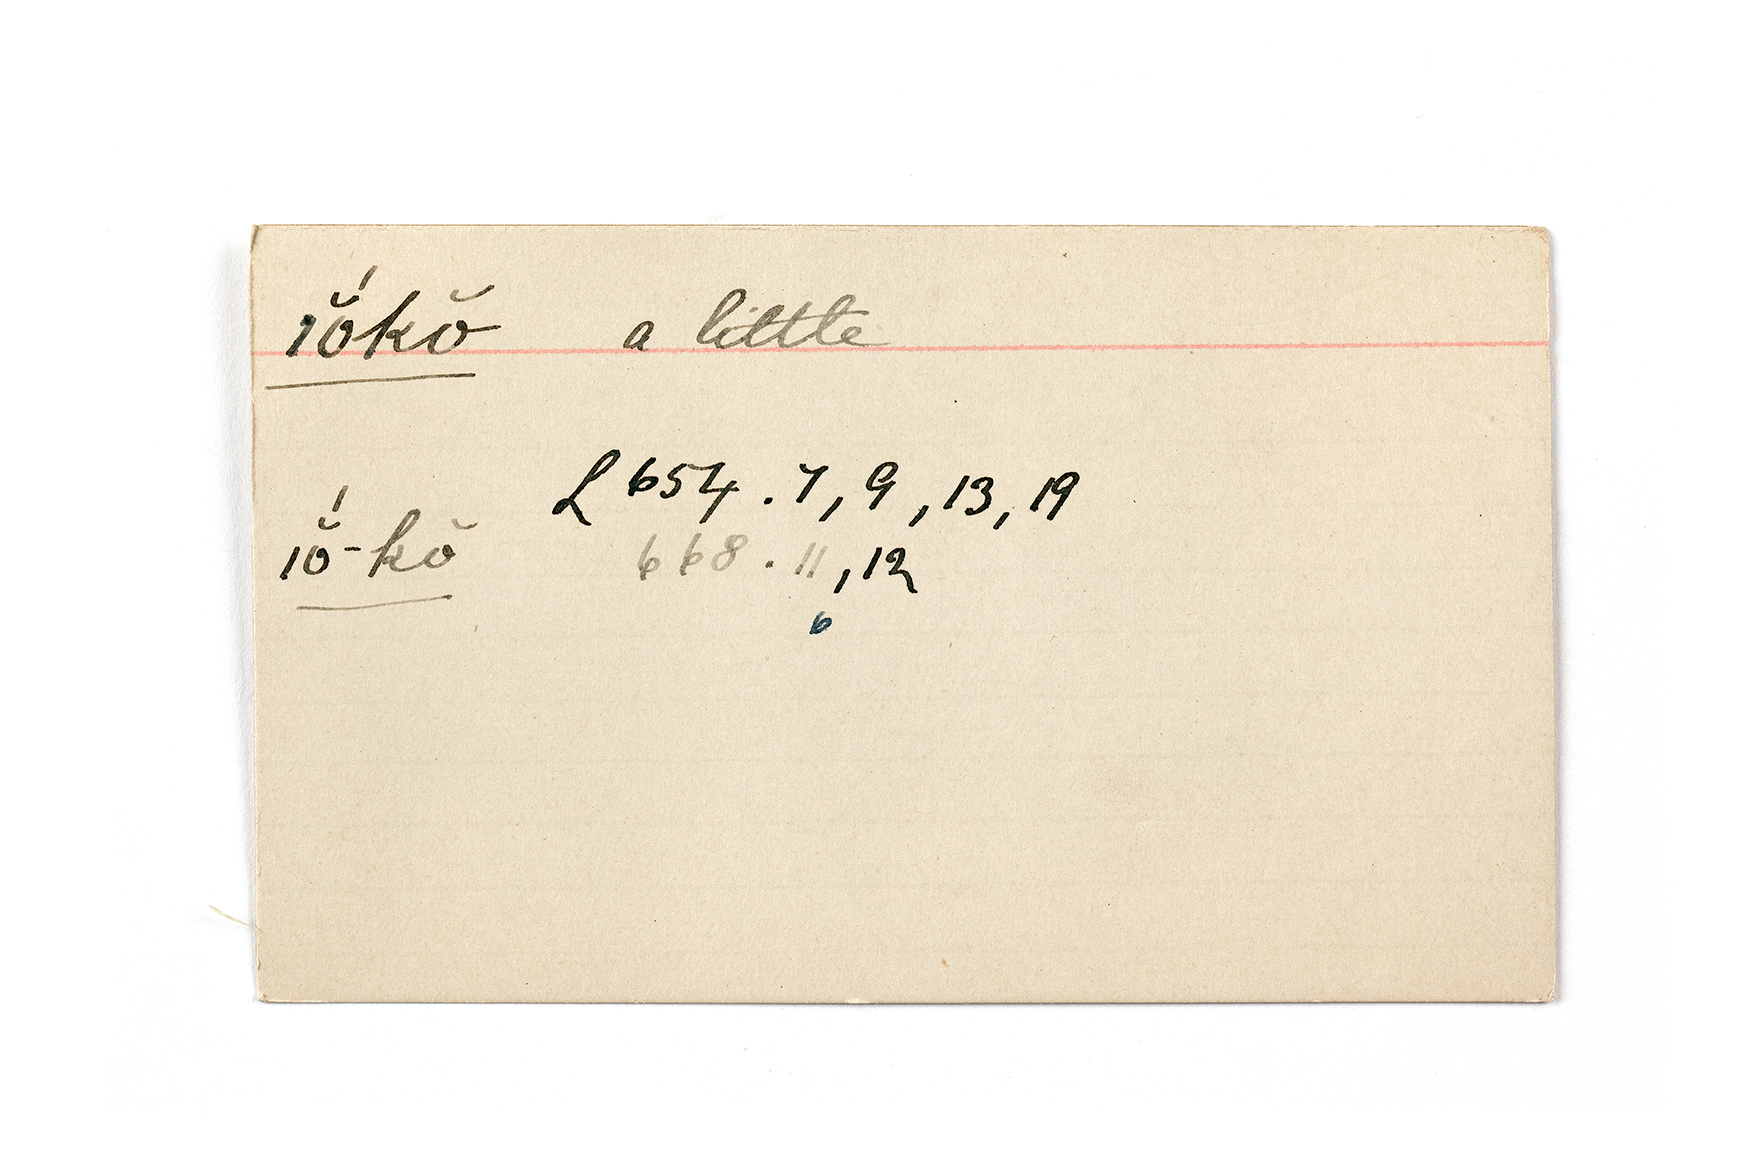 ı̯ŏ́kŏ a little
L 654 . 7, 9, 13, 19
ıŏ́-kŏ 668 . 11, 12
6